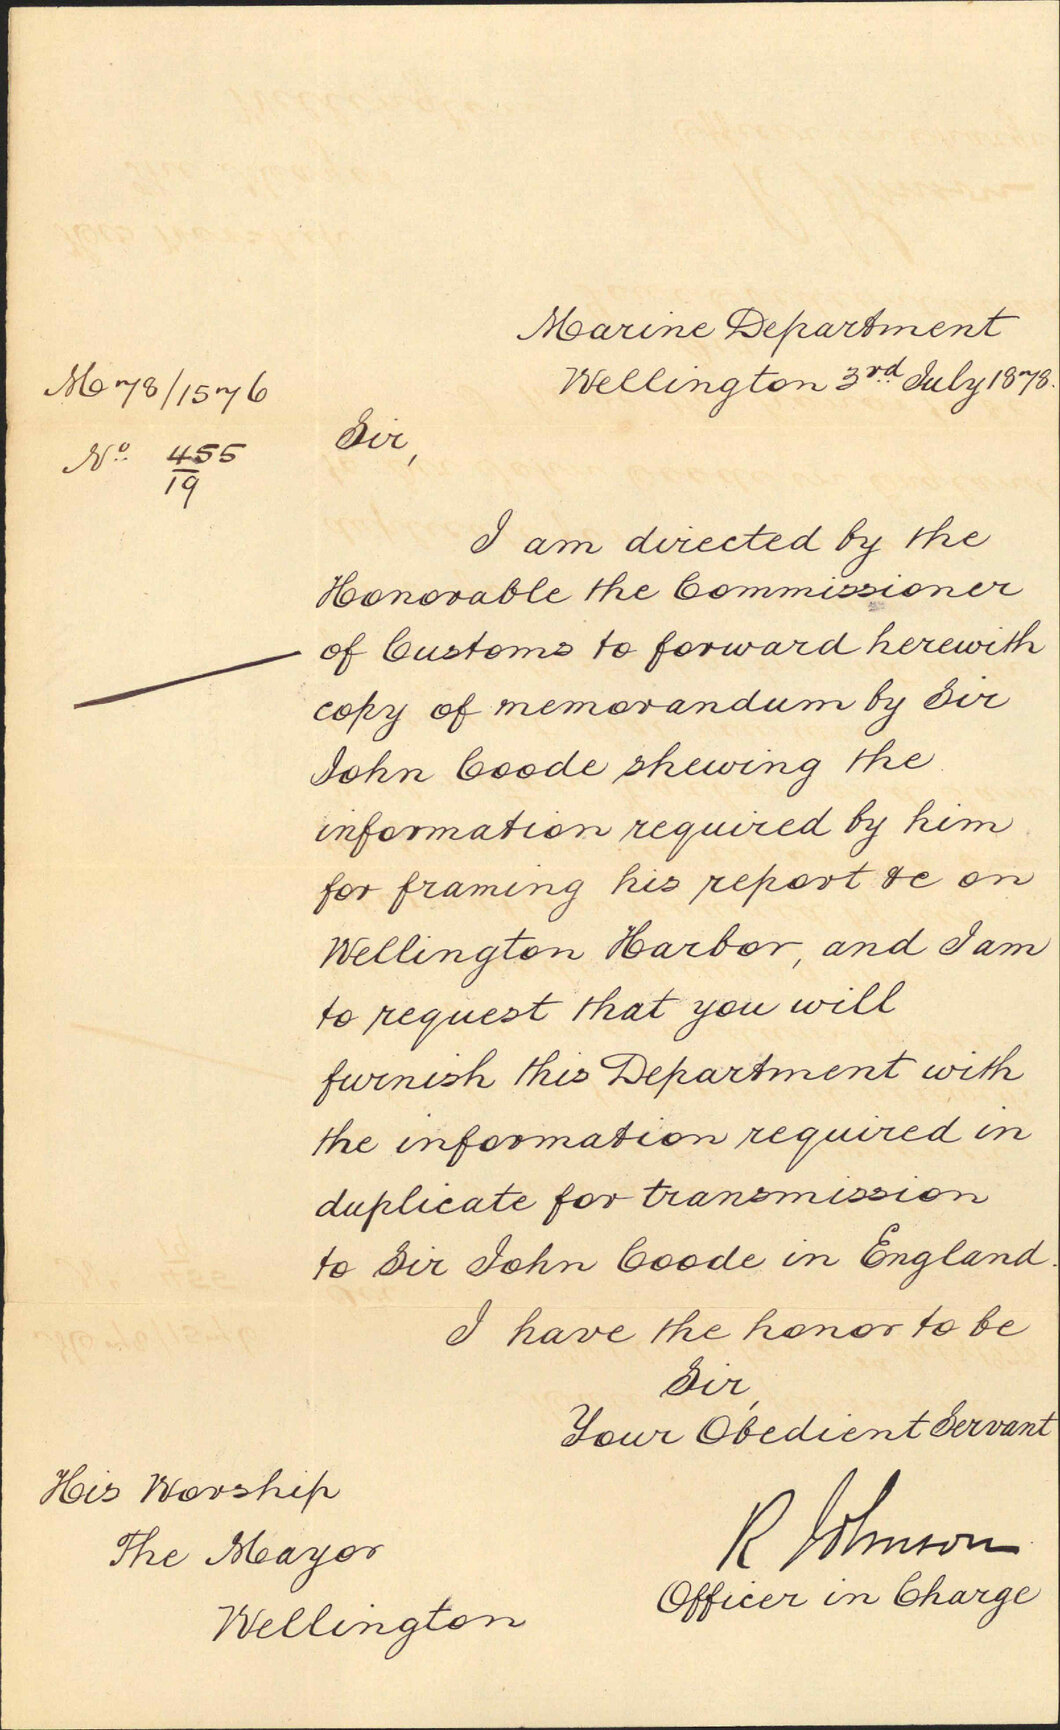 Marine Department
Wellington 3rd July 1878.
M 78/1576
No 455
19
Sir,
I am directed by the
Honorable the Commissioner
of Customs to forward herewith
copy of memorandum by Sir
John Coode shewing the
information required by him
for framing his report &c on
Wellington Harbor, and I am
to request that you will
furnish this Department with
the information required in
duplicate for transmission
to Sir John Coode in England.
I have the honor to be
Sir,
Your Obedient Servant
R Johnson
Officer in Charge
His Worship
The Mayor
Wellington